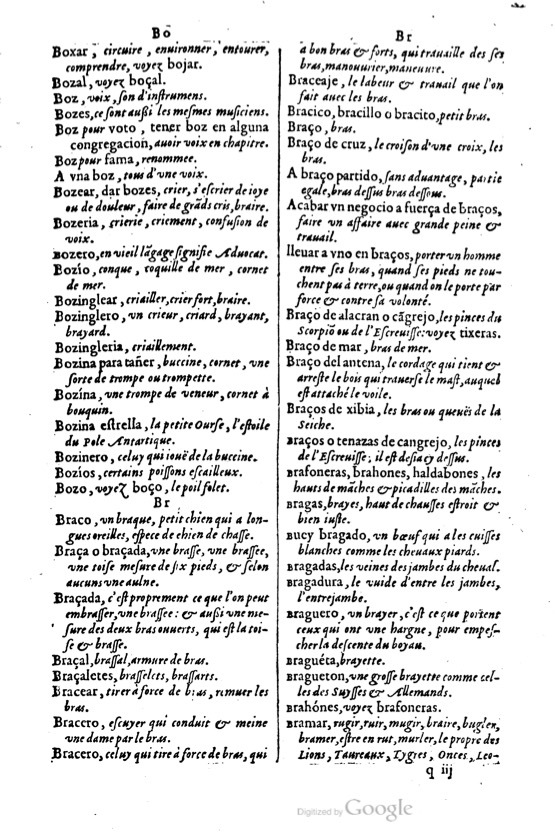 Bo
Boxar, circuire, enuironner, entourer,
comprendre, voyez bojar.
Bozal, voyez boçal.
Boz, voix, son d'instrumens.
Bozes, ce sont außi les mesmes musiciens.
Boz por voto, tener boz en alguna
congregacion, auoir voix en chapitre.
Boz por fama, renommee.
A vna boz, tous d'vne voix.
Bozear, dar bozes, crier, s'escrier de ioye
ou de douleur, faire de grãds cris, braire.
Bozeria, crierie, criement, confusion de
voix.
Bozero, en vieil lãgage signifie Aduocat.
Bozío, conque, coquille de mer, cornet
de mer.
Bozinglear, criailler, crier fort, braire.
Bozinglero, vn crieur, criard, brayant,
brayard.
Bozingleria, criaillement.
Bozina para tañer, buccine, cornet, vne
sorte de trompe ou trompette.
Bozína, vne trompe de veneur, cornet à
bouquin.
Bozina estrella, la petite Ourse, l'estoile
du Pole Antartique.
Bozinero, celuy qui iouë de la buccine.
Bozíos, certains poissons escailleux.
Bozo, voyez boço, le poil folet.
Br
Braco, vn braque, petit chien qui a lon-
gues oreilles, espece de chien de chasse.
Braça o braçada, vne brasse, vne brassée,
vne toise mesure de six pieds, & selon
aucuns vne aulne.
Braçada, c'est proprement ce que l'on peut
embrasser, vne brassee: & außi vne me-
sure des deux bras ouuerts, qui est la toi-
se & brasse.
Braçal, brassal, armure de bras.
Braçaletes, brasselets, brassarts.
Bracear, tirer à force de bras, remuer les
bras.
Braccro, escuyer qui conduit & meine
vne dame par le bras.
Bracero, celuy qui tire à force de bras, qui
Br
a bon bras & forts, qui trauaille des ses
bras, manouurier, maneuure.
Braceaje, le labeur & trauail que l'on
fait auec les bras.
Bracico, bracillo o bracito, petit bras.
Braço, bras.
Braço de cruz, le croison d'vne croix, les
bras.
A braço partido, sans aduantage, partie
egale, bras dessus bras dessous.
Acabar vn negocio a fuerça de braços,
faire vn affaire auec grande peine &
trauail.
lleuar a vno en braços, porter vn homme
entre ses bras, quand ses pieds ne tou-
chent pas à terre, ou quand on le porte par
force & contre sa volonté.
Braço de alacran o cãgrejo, les pinces du
Scorpiõ ou de l'Escreuisse: voyez tixeras.
Braço de mar, bras de mer.
Braço del antena, le cordage qui tient &
arreste le bois qui trauerse le mast, auquel
est attaché le voile.
Braços de xibia, les bras ou queuës de la
Seiche.
Braços o tenazas de cangrejo, les pinces
de l'Escreuisse; il est desia cy dessus.
Brafoneras, brahones, haldabones, les
hauts de mãches & picadilles des mãches.
Bragas, brayes, haut de chausses estroit &
bien iuste.
Buey bragado, vn bœuf qui a les cuisses
blanches comme les cheuaux piards.
Bragadas, les veines des jambes du cheual.
Bragadura, le vuide d'entre les jambes,
l'entrejambe.
Braguero, vn brayer, c'est ce que portent
ceux qui ont vne hargne, pour empes-
cher la descente du boyau.
Braguéta, brayette.
Bragueton, vne grosse brayette comme cel-
les des Suysses & Allemands.
Brahónes, voyez brafoneras.
Bramar, rugir, ruir, mugir, braire, bugler,
bramer, estre en rut, murler, le propre des
Lions, Taureaux, Tygres, Onces, Leo-
q iij
Digitized by Google